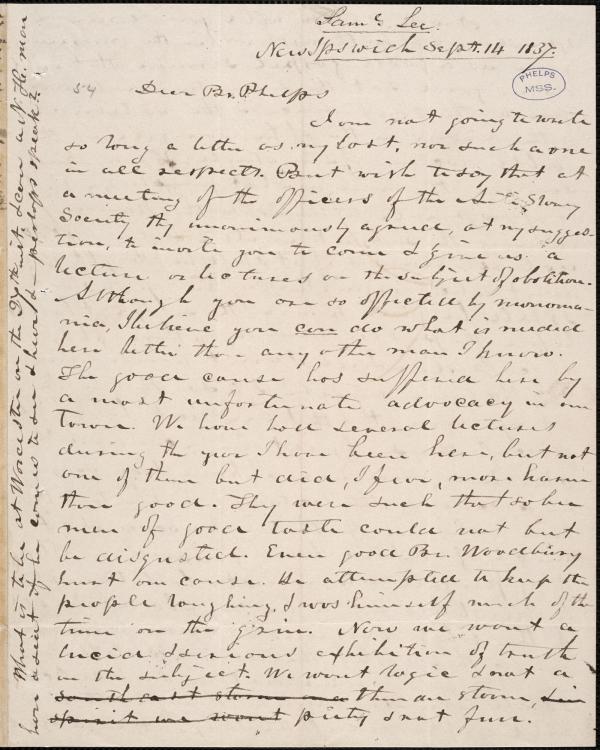 Sam'l Lee.
New Ipswich Sept. 14 1837.
PHELPS
MSS.
54
Dear Br. Phelps
I am not going to write
so long a letter as my last, nor such a one
in all respects. But wish to say that at
a meeting of the officers of the Anti Slavery
Society they unanimously agreed, at my sugges-
tion, to invite you to come & give us a
lecture or lectures on the subject of abolition.
Although you are so afflicted by monoma-
nia, I believe you can do what is needed
here better than any other man I know.
The good cause has suffered here by
a most unfortunate advocacy in our
town. We have had several lectures
during the year I have been here, but not
one of them but did, I fear, more harm
than good. They were such that sober
men of good taste could not but
be disgusted. Even good Br. Woodbury
hurt our cause. He attempted to keep the
people laughing, & was himself much of the
time on the grin. Now we want a
lucid & serious exhibition of truth
on the subject. We want logic & not a
south east storm and a thunder storm,
spirit we want piety & not fun.
What is to be at Worcester on the 27th inst. Seen a N. H. man
have a seat if he comes to see & hear & perhaps speak?